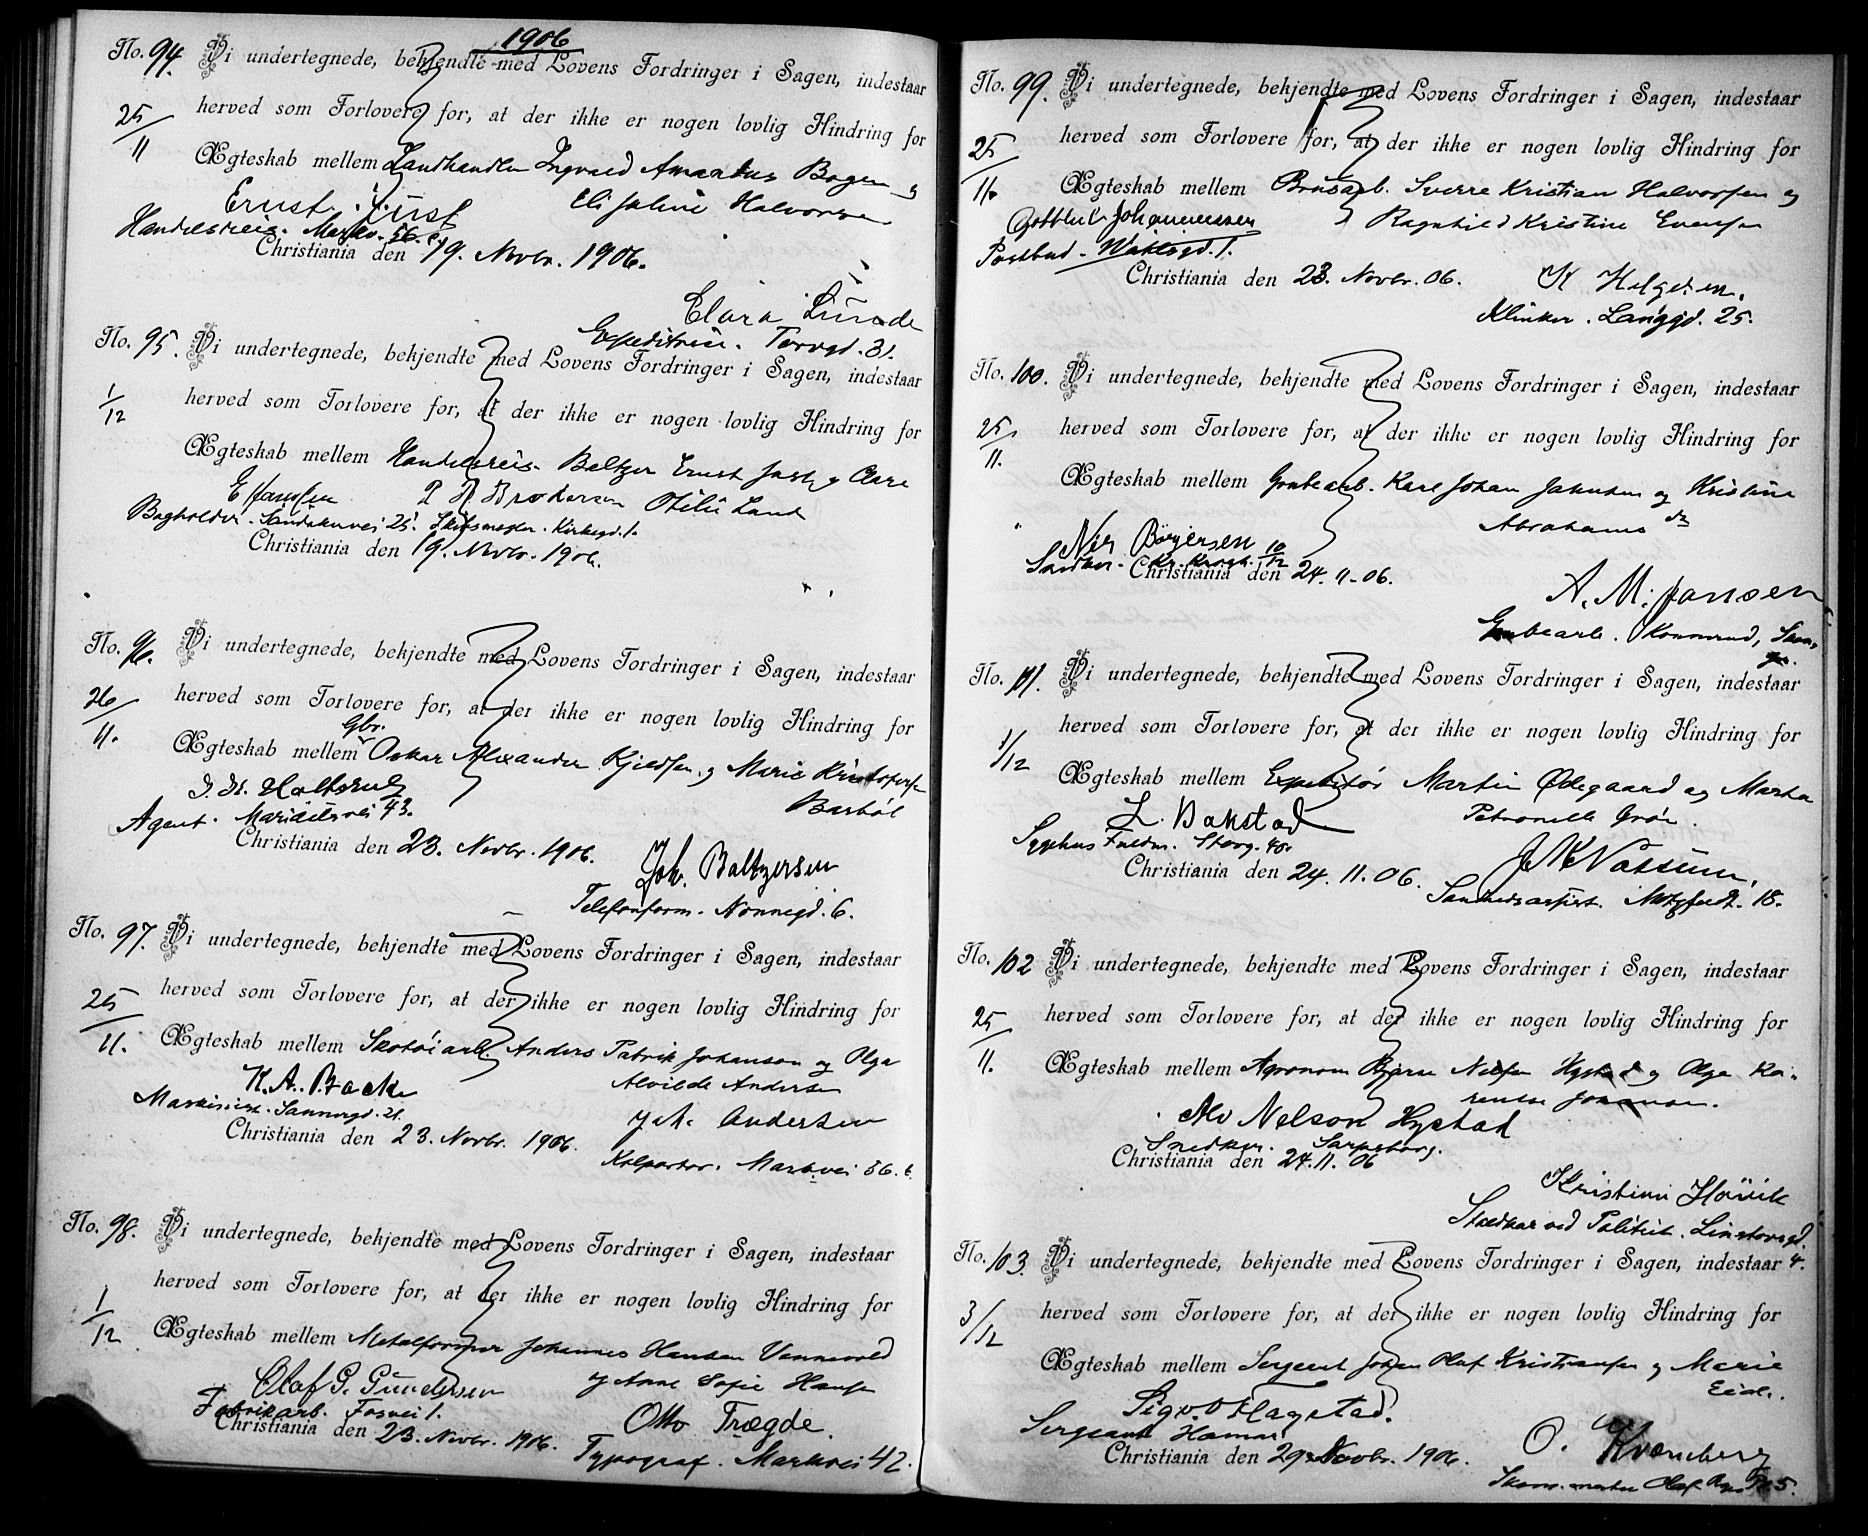 1906
No. 94. Vi undertegnede, bekjendte med Lovens Fordringer i Sagen, indestaar
25/11 herved som Forlovere for, at der ikke er nogen lovlig Hindring for
Ægteskab mellem Landhandler Ingvald Amandus Bogen og
Elisabine Halvorsen
Ernst Just
Handelsreis. Markv. 56.c.
Christiania den 19. Novbr. 1906.
Clara Lunde
Expeditrice. Torvgd. 31.
No. 95. Vi undertegnede, bekjendte med Lovens Fordringer i Sagen, indestaar
1/12 herved som Forlovere for, at der ikke er nogen lovlig Hindring for
Ægteskab mellem Handelsreis. Baltzer Ernst Just og Clara
Otilie Lund
E Janssen P Brodersen
Bogholder. Sandakervei 25. Skibsmægler. Kirkegd. 1.
Christiania den 19. Novbr. 1906.
No. 96. Vi undertegnede, bekjendte med Lovens Fordringer i Sagen, indestaar
26/11. herved som Forlovere for, at der ikke er nogen lovlig Hindring for
Gbr.
Ægteskab mellem Oskar Alexander Kjeldsen og Marie Kristofersen
Barbøl
Agent. Maridalsvei 43.
Christiania den 23. Novbr. 1906.
Joh. Baltzersen
Telefonform. Nonnegd. 6.
No. 97. Vi undertegnede, bekjendte med Lovens Fordringer i Sagen, indestaar
25/11. herved som Forlovere for, at der ikke er nogen lovlig Hindring for
Ægteskab mellem Skotøiarb. Anders Patrik Johanson og Olga
Alvilde Andersen
K. A. Back
Maskinist. Sannergd. 21.
Christiania den 23. Novbr. 1906.
Andersen
Kolportør. Markvei 56.c.
No. 98. Vi undertegnede, bekjendte med Lovens Fordringer i Sagen, indestaar
1/12 herved som Forlovere for, at der ikke er nogen lovlig Hindring for
Ægteskab mellem Metalformer Johannes Hansen Vennevold
og Anne Sofie Hansen
Olaf G. Gundersen
Fabrikarb. Fosvei 1.
Christiania den 23. Novbr. 1906.
Otto Trægde.
Typograf. Markvei 42.
No. 99. Vi undertegnede, bekjendte med Lovens Fordringer i Sagen, indestaar
25/11. herved som Forlovere for, at der ikke er nogen lovlig Hindring for
Ægteskab mellem Brusarb. Sverre Kristian Halvorsen og
Ragnhild Kristine Evensen
Gottlieb Johannessen
Postbud. 1.
Christiania den 23. Novbr. 06.
K Helgesen.
Klinker. Langgd. 25.
No. 100. Vi undertegnede, bekjendte med Lovens Fordringer i Sagen, indestaar
25/11. herved som Forlovere for, at der ikke er nogen lovlig Hindring for
Ægteskab mellem Grubearb. Karl Johan Jakobsen og Kristine
Abrahams dr
Nils Börjersen
Snedker. Kr. Krogh. 10/12
Christiania den 24.11.06.
A. M. Jansen
Grubearb. Konnerud,
No. 101. Vi undertegnede, bekjendte med Lovens Fordringer i Sagen, indestaar
1/12 herved som Forlovere for, at der ikke er nogen lovlig Hindring for
Ægteskab mellem Expeditør Martin Ødegaard og Marta
Petronelle
L. Bakstad
Sygehus Storg. 40.
Christiania den 24. 11. 06.
18.
No. 102 Vi undertegnede, bekjendte med Lovens Fordringer i Sagen, indestaar
25/11. herved som Forlovere for, at der ikke er nogen lovlig Hindring for
Ægteskab mellem Agronom Bjarne Nelson Hystad og Olga Ka-
rense
Alv Nelson Hystad
Snedker. Sarpsborg.
Christiania den 24.11.06
Kristian Hövik
Staldkar ved Politiet. Linstowsgd. 4.
No. 103. Vi undertegnede, bekjendte med Lovens Fordringer i Sagen, indestaar
3/12 herved som Forlovere for, at der ikke er nogen lovlig Hindring for
Ægteskab mellem Sergeant Johan Olaf Kristiansen og Marie
Eide.
Sigv. Flagstad.
Sergeant Hamar
Christiania den 29. Novbr. 1906.
O. Kværnberg
Olaf 5.